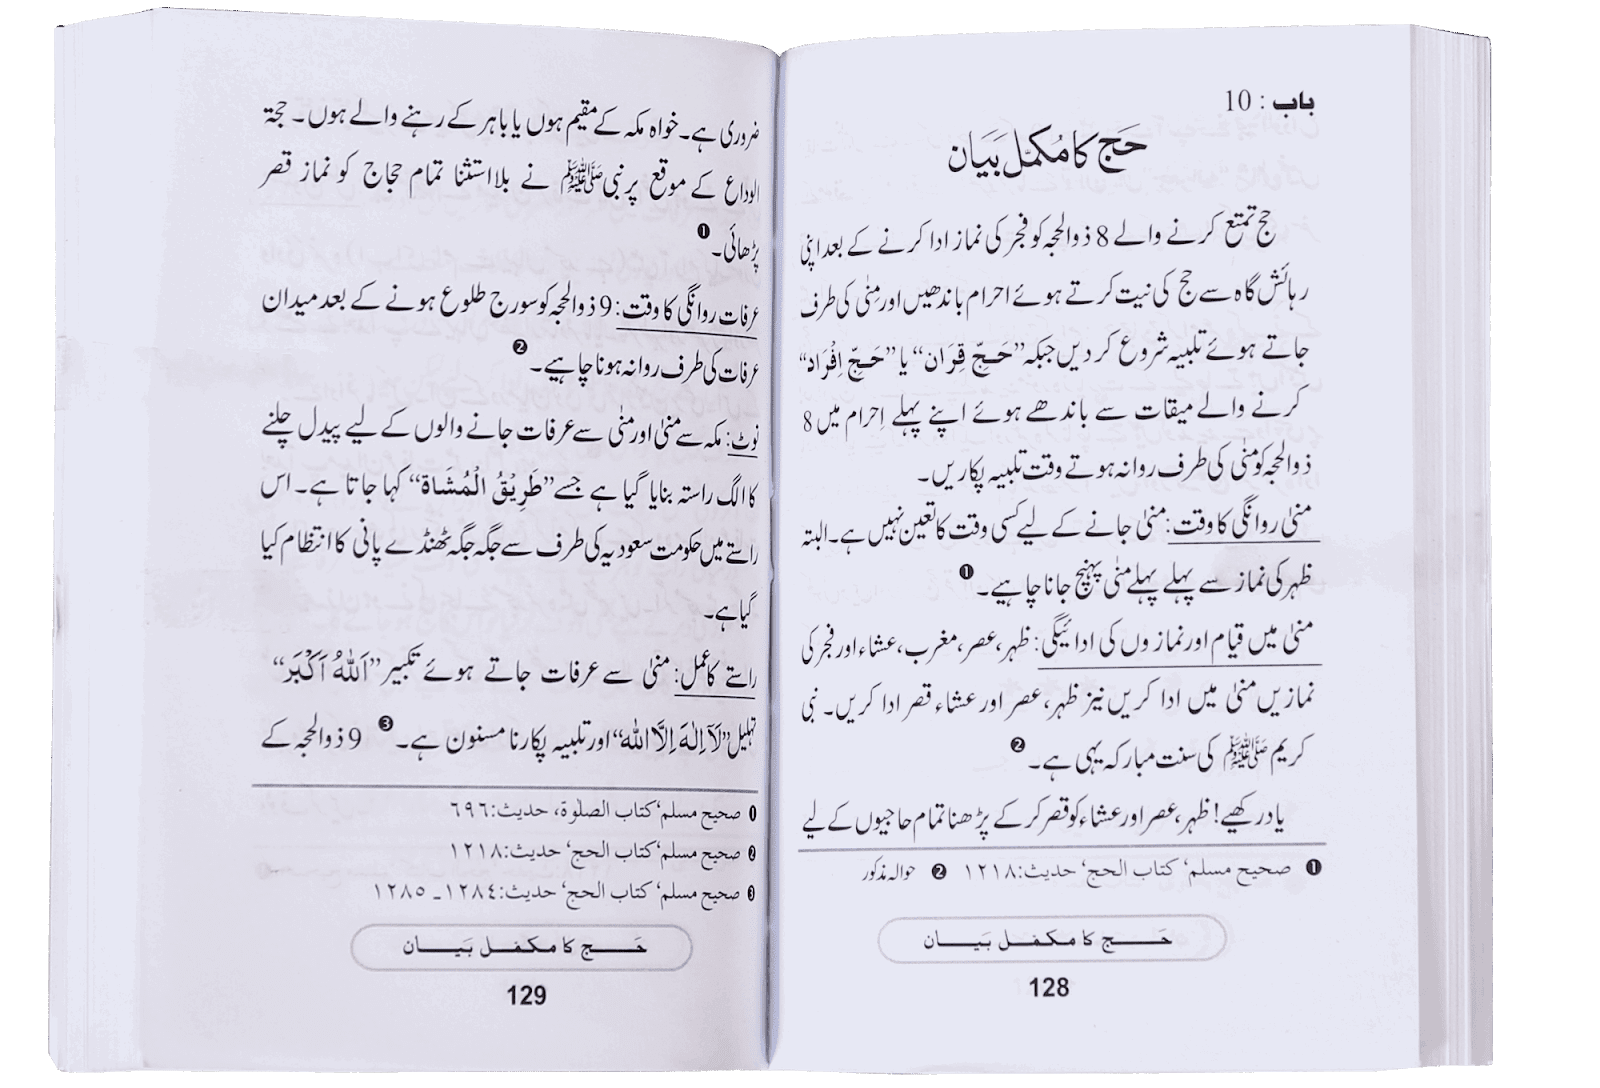 باب : 10
حَج کا مُکمّل بَیَان
حج تمتع کرنے والے 8 ذوالحجہ کو فجر کی نماز ادا کرنے کے بعد اپنی
رہائش گاہ سے حج کی نیت کرتے ہوئے احرام باندھیں اور مِنٰی کی طرف
جاتے ہوئے تلبیہ شروع کر دیں جبکہ ”حَجِّ قِرَان“ یا ”حَجِّ اِفْرَاد“
کرنے والے میقات سے باندھے ہوئے اپنے پہلے اِحرام میں 8
ذوالحجہ کو منٰی کی طرف روانہ ہوتے وقت تلبیہ پکاریں۔
منیٰ روانگی کا وقت: منیٰ جانے کے لیے کسی وقت کا تعین نہیں ہے۔ البتہ
ظہر کی نماز سے پہلے پہلے منٰی پہنچ جانا چاہیے۔ ❶
منیٰ میں قیام اور نمازوں کی ادائیگی: ظہر، عصر، مغرب، عشاء اور فجر کی
نمازیں منیٰ میں ادا کریں نیز ظہر، عصر اور عشاء قصر ادا کریں۔ نبی
کریم ﷺ کی سنت مبارکہ یہی ہے۔ ❷
یاد رکھیے! ظہر، عصر اور عشاء کو قصر کر کے پڑھنا تمام حاجیوں کے لیے
❶ صحیح مسلم، کتاب الحج، حدیث:۱۲۱۸ ❷ حوالہ مذکور
حَج کا مکمل بَیَان
128
ضروری ہے۔ خواہ مکہ کے مقیم ہوں یا باہر کے رہنے والے ہوں۔ حجۃ
الوداع کے موقع پر نبی ﷺ نے بلااستثنا تمام حجاج کو نماز قصر
پڑھائی۔ ❶
عرفات روانگی کا وقت: 9 ذوالحجہ کو سورج طلوع ہونے کے بعد میدان
عرفات کی طرف روانہ ہونا چاہیے۔ ❷
نوٹ: مکہ سے منیٰ اور منیٰ سے عرفات جانے والوں کے لیے پیدل چلنے
کا الگ راستہ بنایا گیا ہے جسے ”طَرِيْقُ الْمُشَاة“ کہا جاتا ہے۔ اس
راستے میں حکومت سعودیہ کی طرف سے جگہ جگہ ٹھنڈے پانی کا انتظام کیا
گیا ہے۔
راستے کا عمل: منیٰ سے عرفات جاتے ہوئے تکبیر ”اَللّٰهُ اَكْبَرَ“
تہلیل ”لَآ اِلٰهَ اِلَّا اللّٰه“ اور تلبیہ پکارنا مسنون ہے۔ ❸ 9 ذوالحجہ کے
❶ صحیح مسلم، کتاب الصلوٰۃ، حدیث:۶۹۶
❷ صحیح مسلم، کتاب الحج، حدیث:۱۲۱۸
❸ صحیح مسلم، کتاب الحج، حدیث:۱۲۸۴۔۱۲۸۵
حَج کا مکمل بَیَان
129